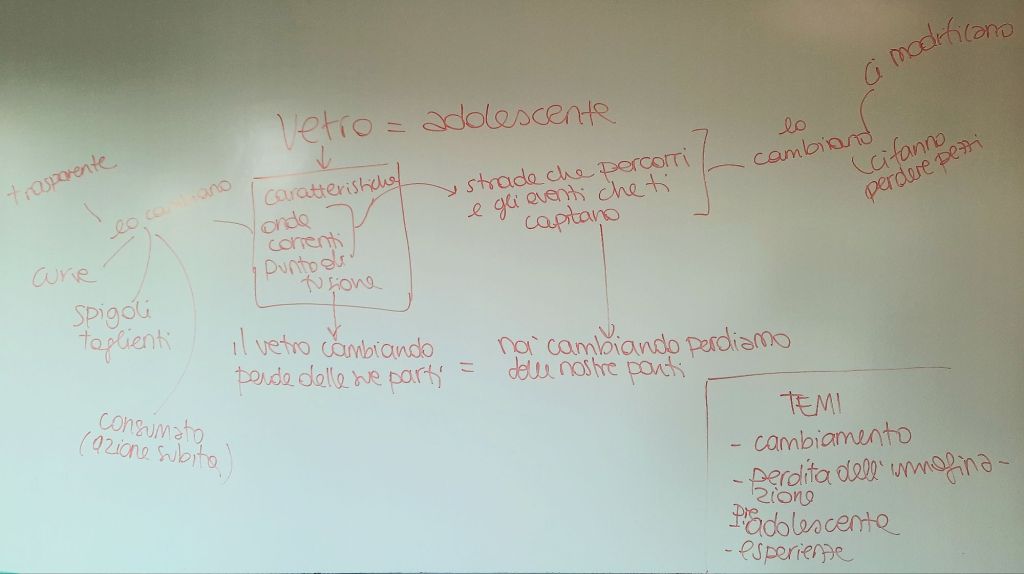 Vetro = adolescente
trasparente
lo cambiano
curve
spigoli
taglienti
consumato
(azione subita)
caratteristiche
onde
correnti
punto di
fusione
strade che percorri
e gli eventi che ti
capitano
lo
cambiano
ci modificano
ci fanno
perdere pezzi
il vetro cambiando
perde delle sue parti
=
noi cambiando perdiamo
delle nostre parti
TEMI
- cambiamento
- perdita dell'immagina-
zione
pre
adolescente
- esperienze